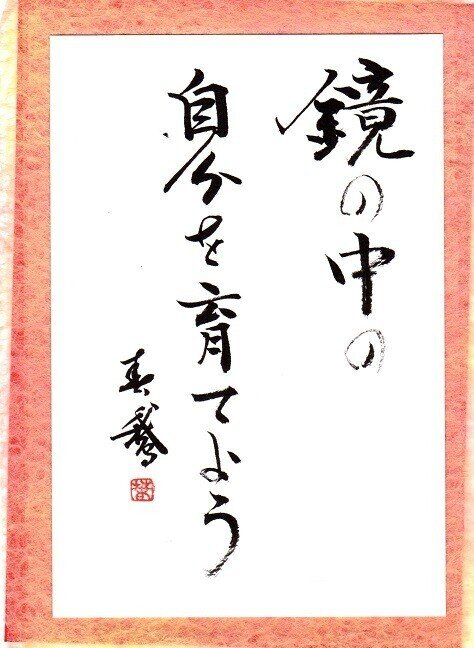 鏡の中の
自分を育てよう
春鵞